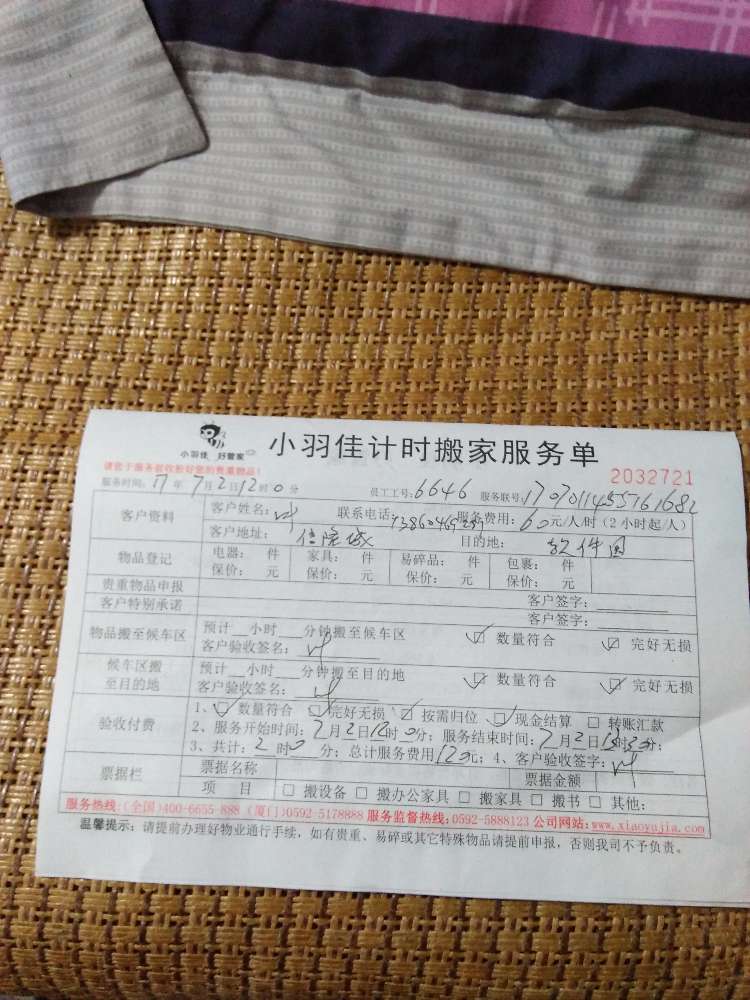 小羽佳 好管家
小羽佳计时搬家服务单
请您于服务前收拾好您的贵重物品!
2032721
服务时间: 17年7月2日12时0分 员工工号: 6646 服务联号:
客户资料 客户姓名: 叶 联系电话: 服务费用: 60元/人/时(2小时起/人)
客户地址: 目的地: 软件园
物品登记 电器: 件 家具: 件 易碎品: 件 包裹: 件
保价: 元 保价: 元 保价: 元 保价: 元
贵重物品申报 客户签字:
客户特别承诺 客户签字:
物品搬至候车区 预计__小时___分钟搬至候车区 ☑ 数量符合 ☑ 完好无损
客户验收签名: 叶
候车区搬至目的地 预计__小时___分钟搬至目的地 ☑ 数量符合 ☑ 完好无损
客户验收签名: 叶
验收付费 1、☑ 数量符合 ☑ 完好无损 ☑ 按需归位 ☑ 现金结算 □ 转账汇款
2、服务开始时间: 7月2日12时0分; 服务结束时间: 7月2日
3、共计: 2时0分; 总计服务费用120元; 4、客户验收签字: 叶
票据栏 票据名称 票据金额
项 目 □ 搬设备 □ 搬办公家具 □ 搬家具 □ 搬书 □ 其他:
服务热线:(全国)400-6655-888 (厦门)0592-5178888 服务监督热线:0592-5888123 公司网站:www.xiaoyujia.com
温馨提示: 请提前办理好物业通行手续, 如有贵重、易碎或其它特殊物品请提前申报, 否则我司不予负责。